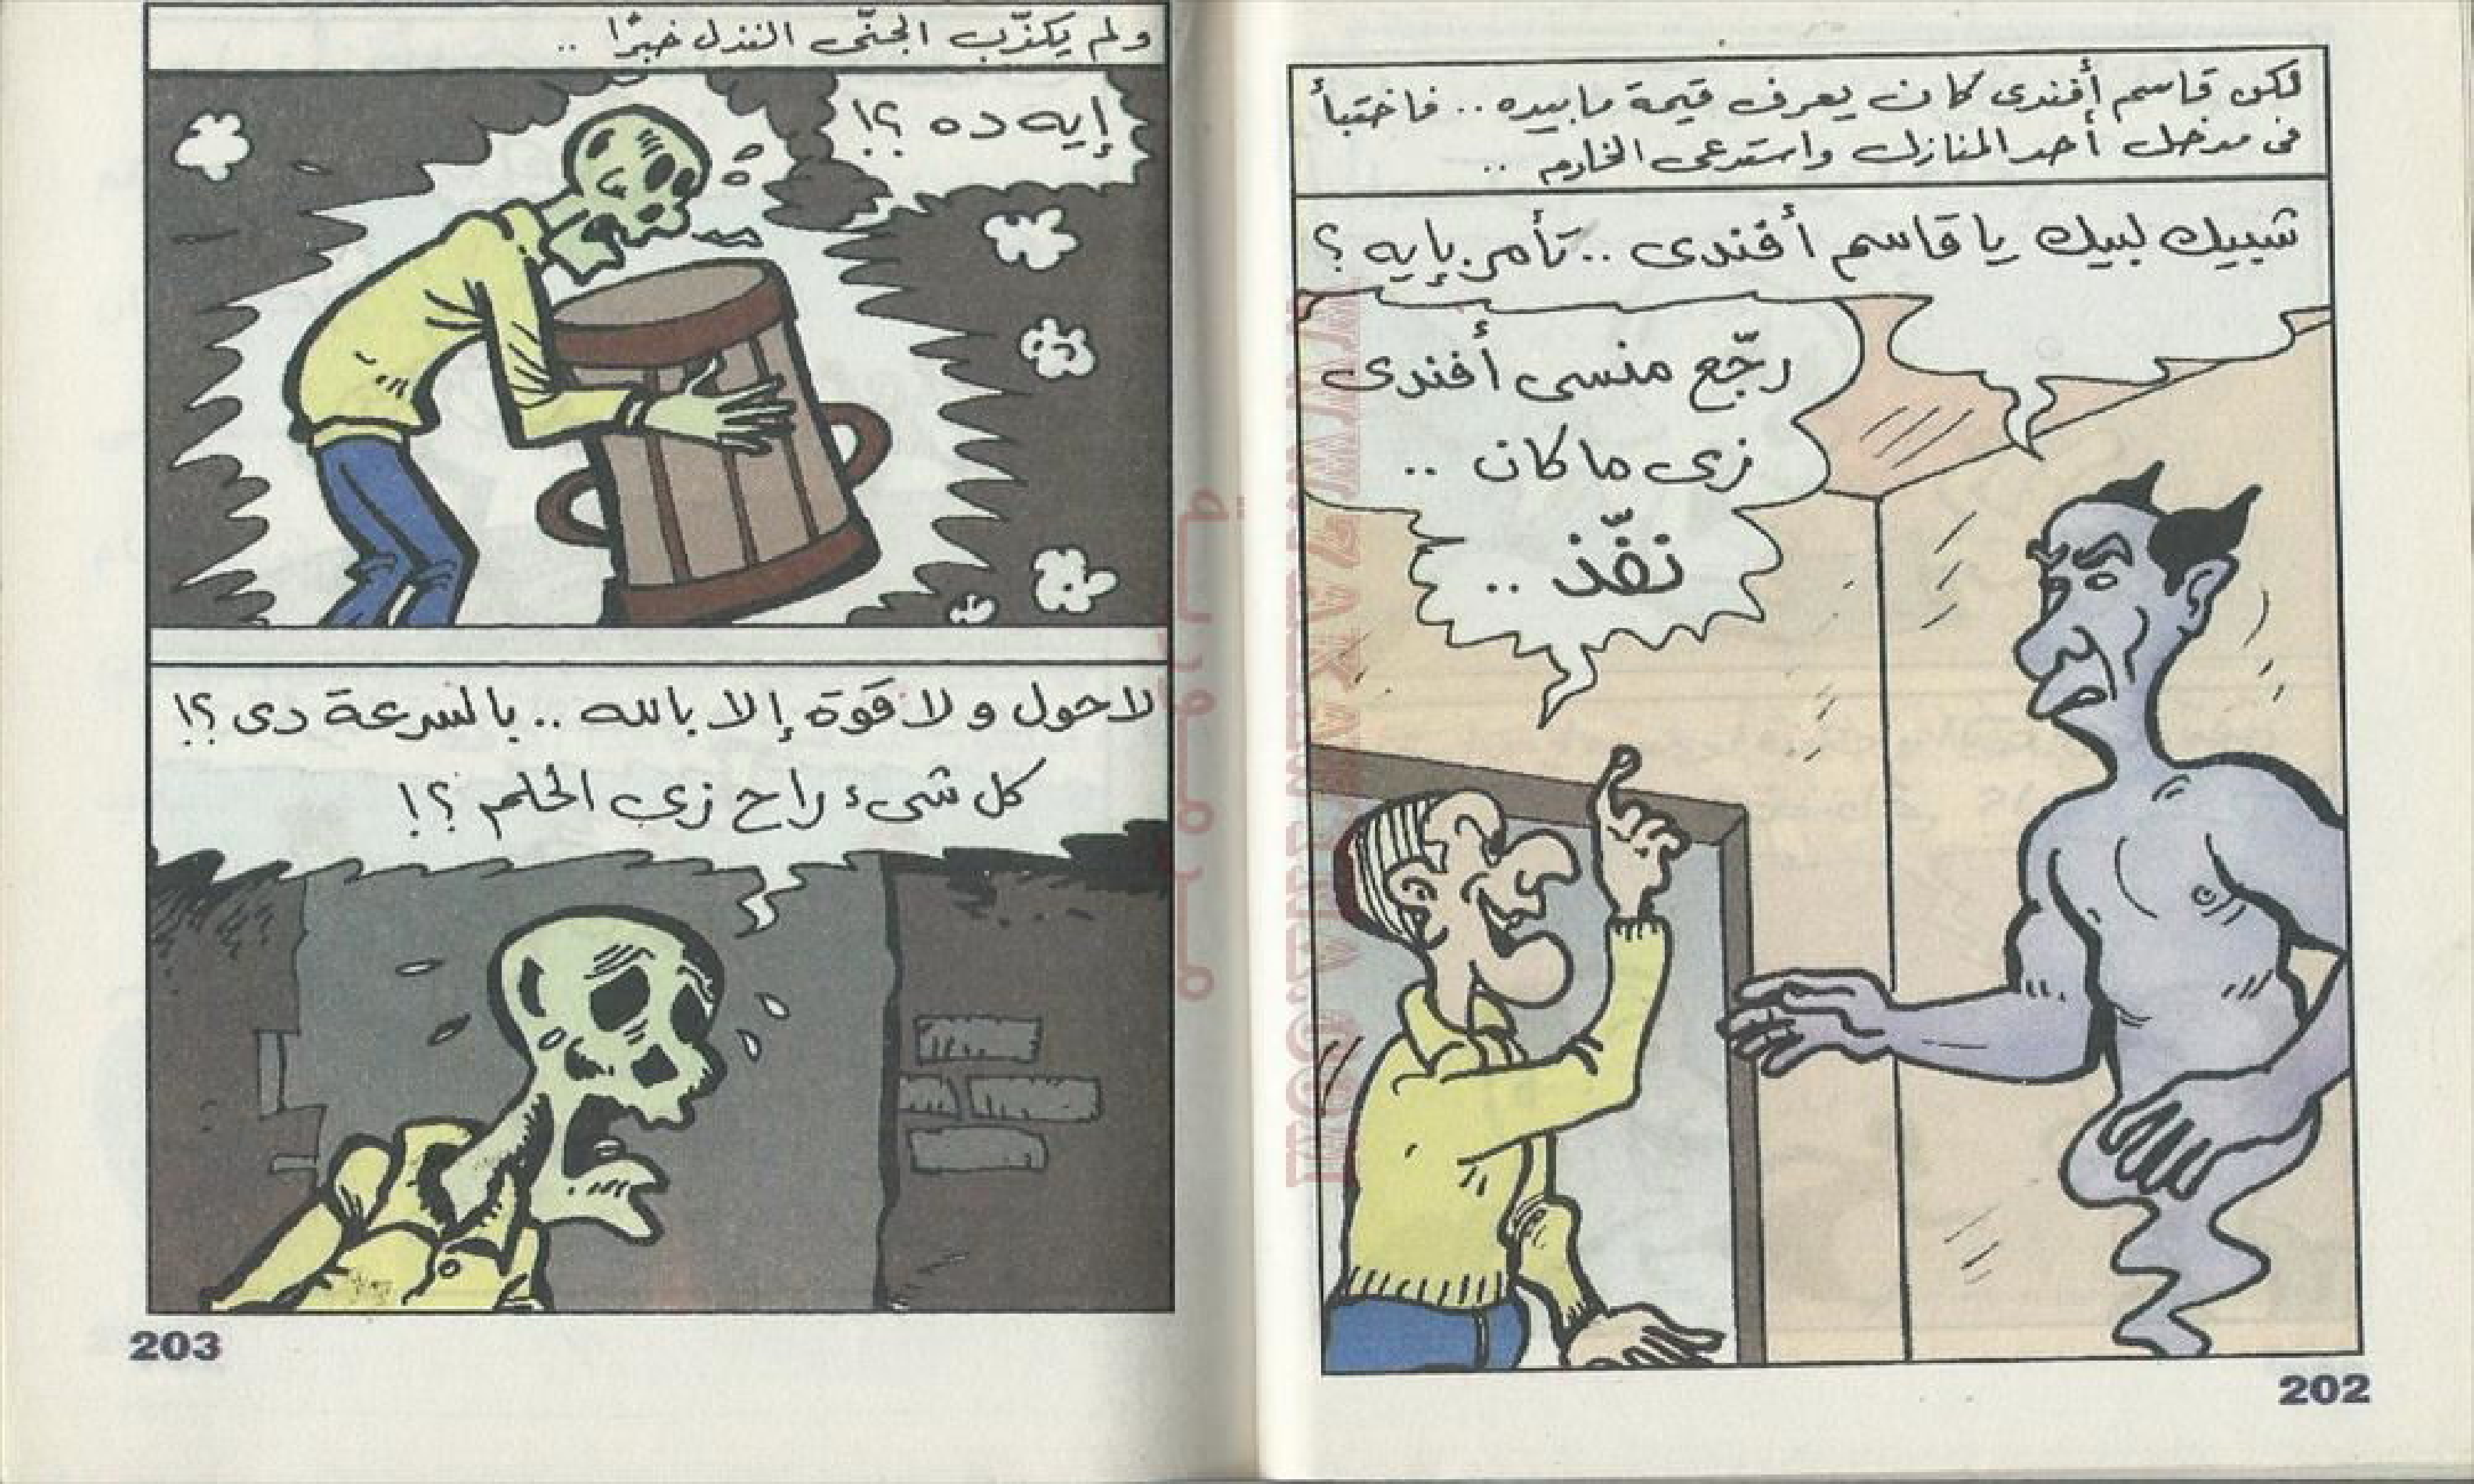 لكن قاسم أفندى كان يعرف قيمة مابيده .. فاختبأ
فى مدخل أحد المنازل واستدعى الخادم ..
شبيك لبيك ياقاسم أفندى .. تأمر بإيه ؟
رجّع منسى أفندى
زى ماكان ..
نفّذ ..
202
ولم يكذّب الجنّى النذل خبرًا ..
إيه ده ؟!
لاحول ولاقوة إلا بالله .. بالسرعة دى ؟!
كل شىء راح زى الحلم ؟!
203